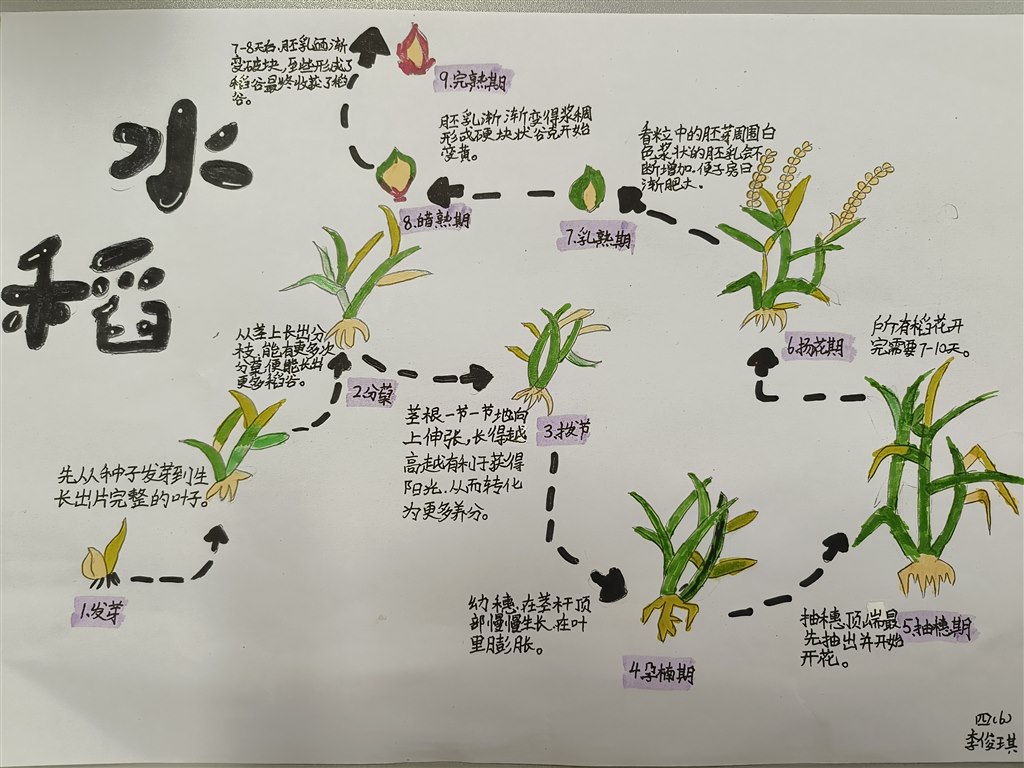 水
稻
7-8天后.胚乳逐渐
变硬块,至些形成了
稻谷最终收获了稻
谷。
9.完熟期
胚乳渐渐变得浆稠
形成硬块状谷壳开始
变黄。
8.蜡熟期
7.乳熟期
香粒中的胚芽周围白
色浆状的胚乳会不
断增加.使子房日
渐肥大.
6.扬花期
所有稻花开
完需要7-10天。
从茎上长出分
枝,能有更多次
分蘖便能长出
更多稻谷。
2.分蘖
3.拔节
茎根一节一节地向
上伸张,长得越
高越有利于获得
阳光.从而转化
为更多养分。
先从种子发芽到生
长出片完整的叶子.
1.发芽
幼穗.在茎秆顶
部慢慢生长.在叶
里膨胀。
4.孕楠期
抽穗顶端最
先抽出并开始
开花。
5.抽穗期
四(6)
李俊琪